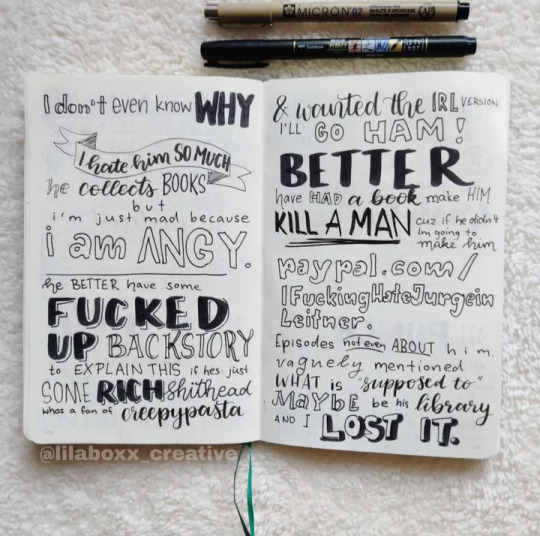 MICRON 02
I don't even know WHY
I hate him SO MUCH
he collects BOOKS
but
i'm just mad because
i am ANGY.
he BETTER have some
FUCKED
UP BACKSTORY
to EXPLAIN THIS if hes just
SOME RICH shithead
whos a fan of creepypasta
& wanted the IRL VERSION
I'LL GO HAM!
BETTER
have HAD a book make HIM
KILL A MAN cuz if he didn't
Im going to
make him
paypal.com/
IFuckingHateJurgein
Leitner.
Episodes not even ABOUT him.
vaguely mentioned
WHAT is "supposed to"
MAYBE be his library
AND I LOST IT.
@lilaboxx_creative